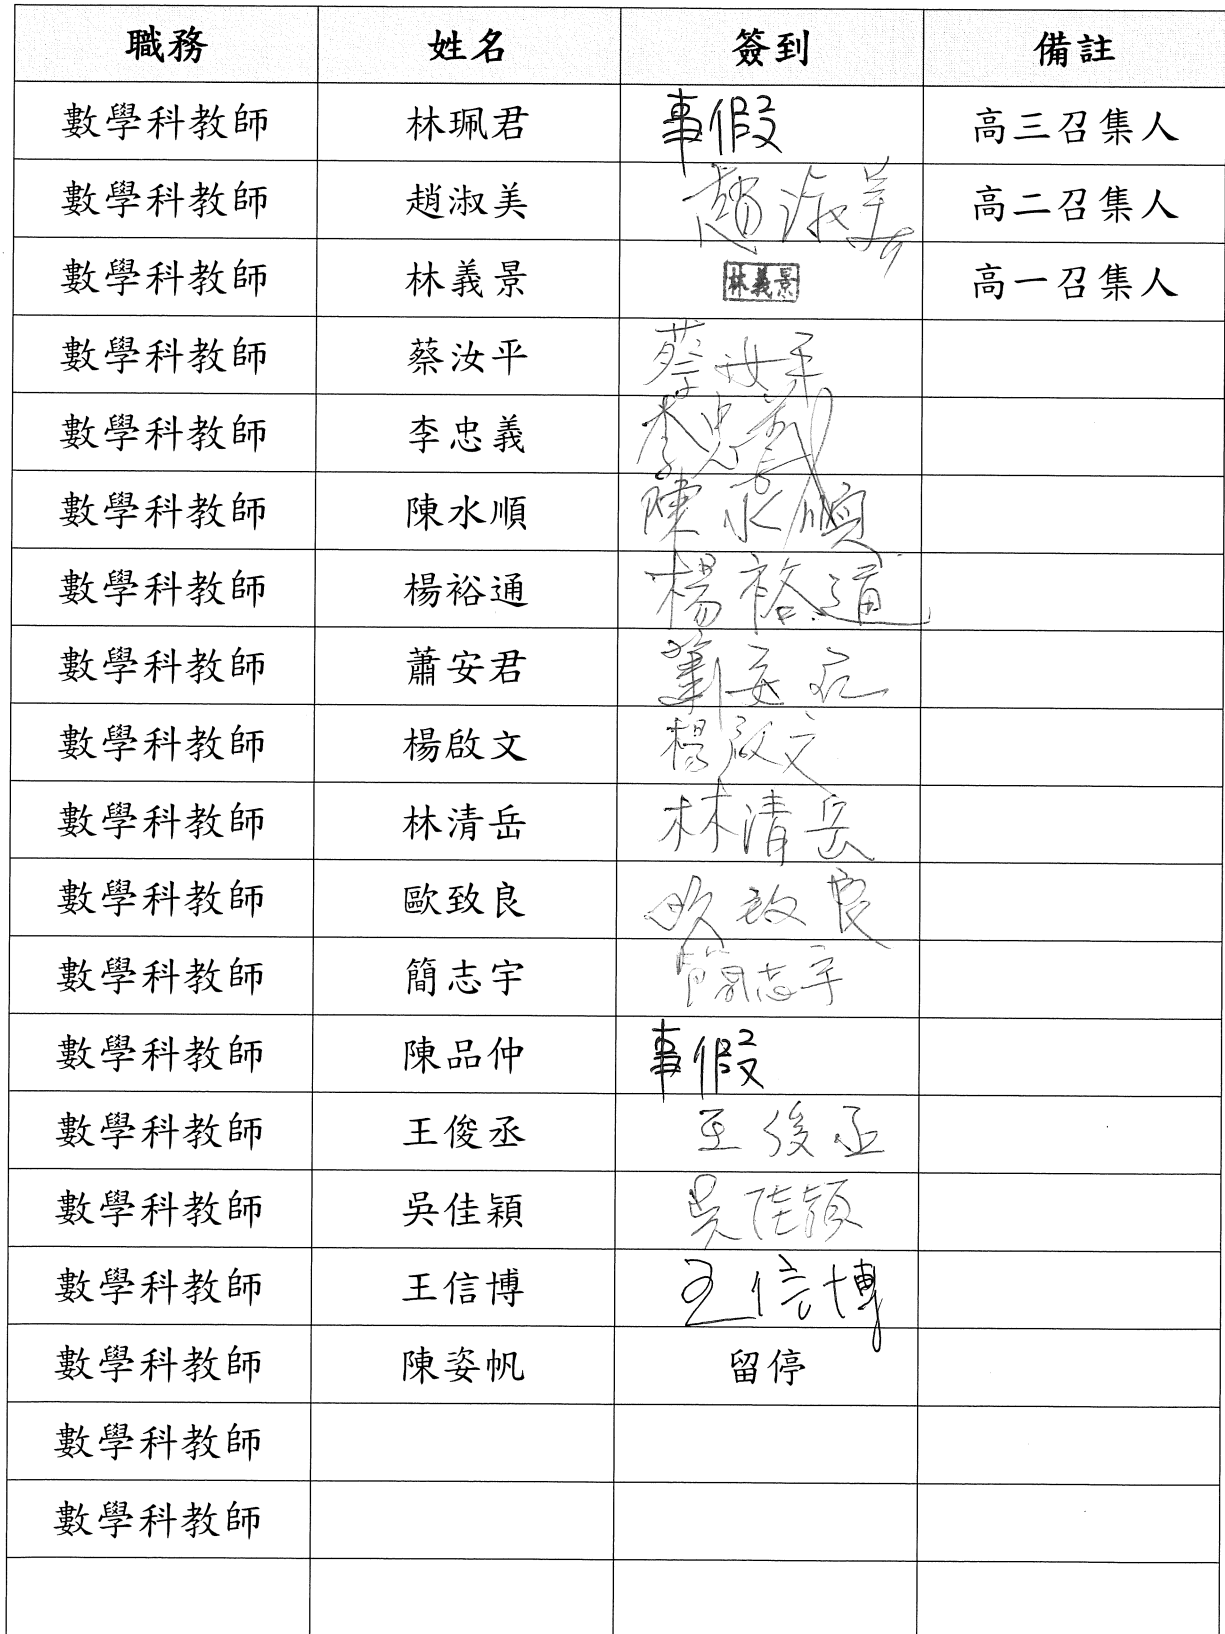 職務 姓名 簽到 備註
數學科教師 林珮君 事假 高三召集人
數學科教師 趙淑美 趙淑美 高二召集人
數學科教師 林義景 林義景 高一召集人
數學科教師 蔡汝平 蔡汝平
數學科教師 李忠義 李忠義
數學科教師 陳水順 陳水順
數學科教師 楊裕通 楊裕通
數學科教師 蕭安君 蕭安君
數學科教師 楊啟文 楊啟文
數學科教師 林清岳 林清岳
數學科教師 歐致良 欧致良
數學科教師 簡志宇 簡志宇
數學科教師 陳品仲 事假
數學科教師 王俊丞 王俊丞
數學科教師 吳佳穎 吳佳穎
數學科教師 王信博 王信博
數學科教師 陳姿帆 留停
數學科教師
數學科教師